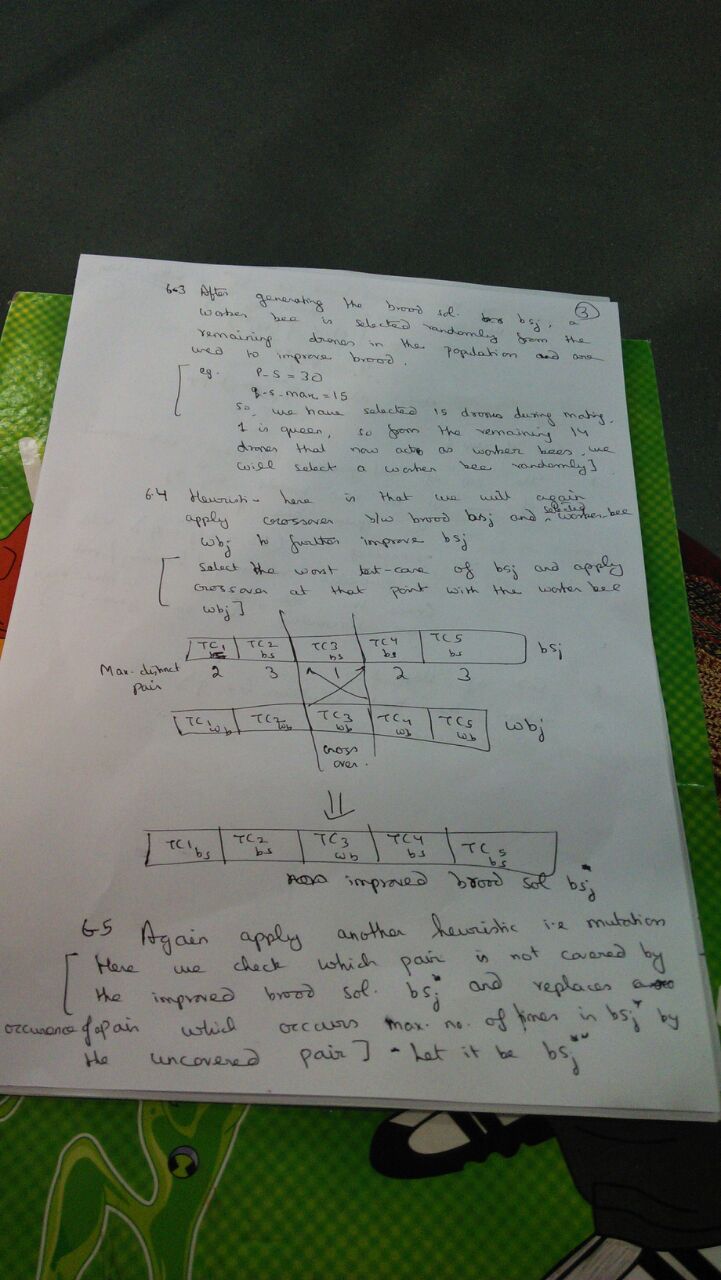 3
6.3 After generating the brood sol. bsj, a
worker bee is selected randomly from the
remaining drones in the population and are
used to improve brood.
[ eg. P-S = 30
q-s-max = 15
So, we have selected 15 drones during mating,
1 is queen, so from the remaining 14
drones that now acts as worker bees, we
will select a worker bee randomly]
6.4 Heuristic here is that we will again
apply crossover b/w brood bsj and selected worker bee
wbj to further improve bsj
[ Select the worst test-case of bsj and apply
crossover at that point with the worker bee
wbj ]
TC1 bs TC2 bs TC3 bs TC4 bs TC5 bs bsj
Max. distinct pair 2 3 1 2 3
TC1 wb TC2 wb TC3 wb TC4 wb TC5 wb wbj
cross
over.
TC1 bs TC2 bs TC3 wb TC4 bs TC5 bs
improved brood sol bsj*
6.5 Again apply another heuristic i.e mutation
[ Here we check which pair is not covered by
the improved brood sol. bsj* and replaces
occurance of pair which occurs max. no. of times in bsj* by
the uncovered pair ] - Let it be bsj**